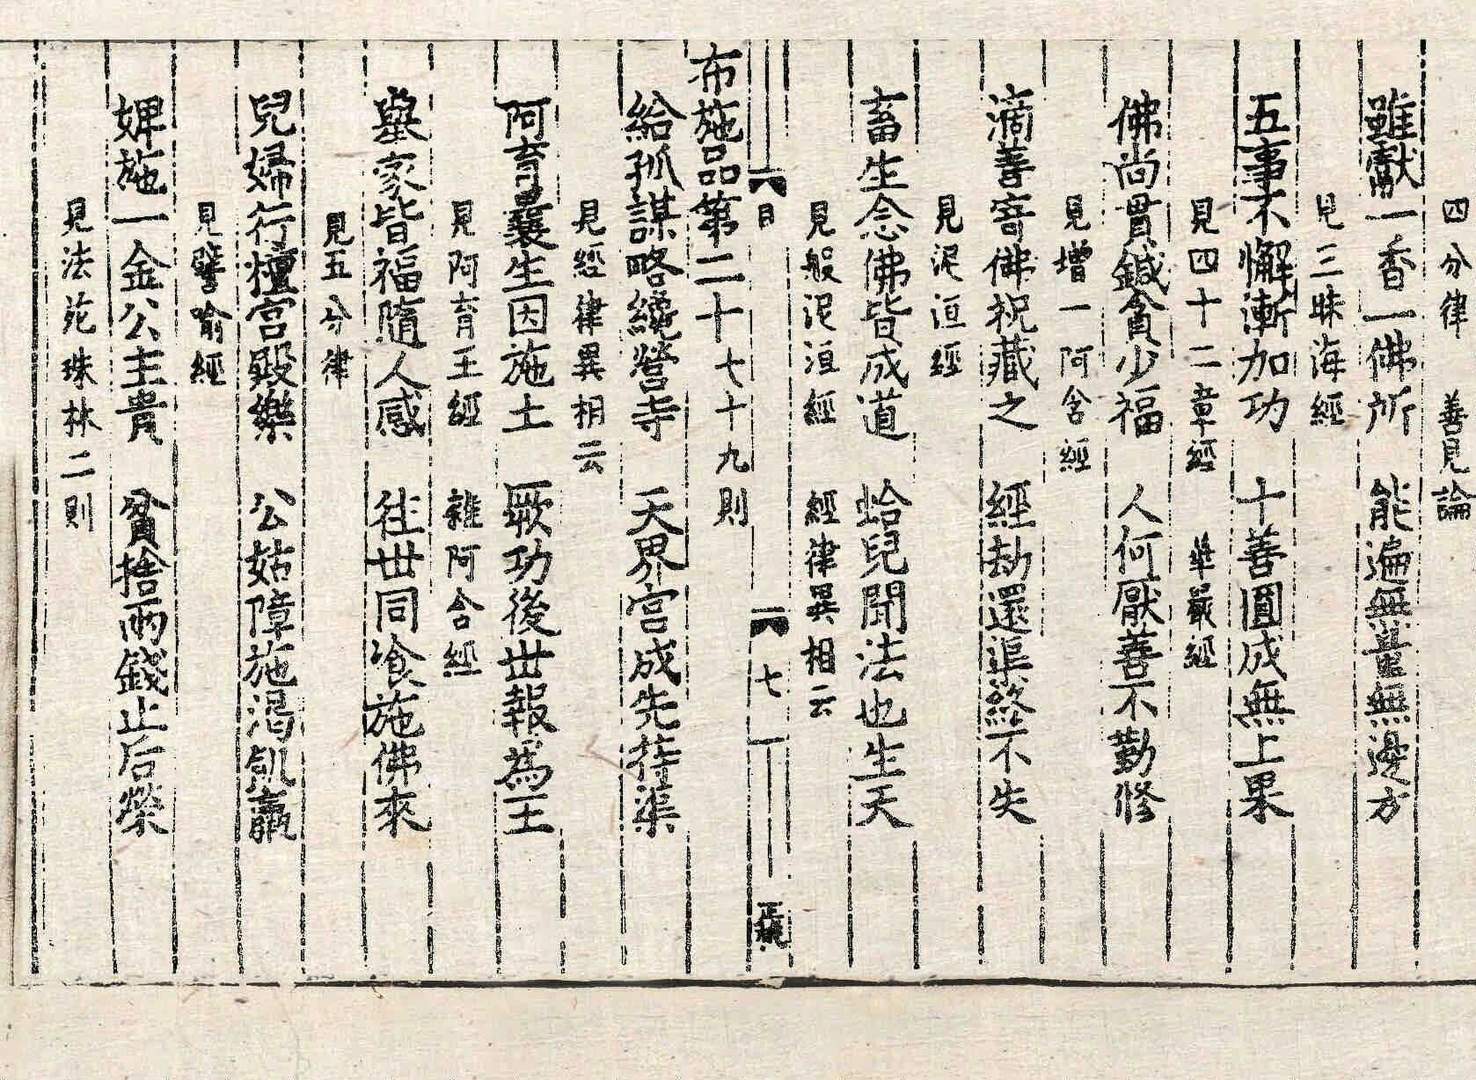 四分律　善見論
雖獻一香一佛所　能遍無量無邊方
見三昧海經
五事不懈漸加功　十善圓成無上果
見四十二章經　華嚴經
佛尚貫鍼貪少福　人何厭善不勤修
見增一阿含經
滴善寄佛祝藏之　經劫還渠終不失
見泥洹經
畜生念佛皆成道　蛤兒聞法也生天
見般泥洹經　經律異相云
目　七
布施品第二十七　十九則
給孤謀略纔營寺　天界宮成先待渠
見經律異相云
阿育曩生因施土　厥功後世報為王
見阿育王經　雜阿含經
舉家皆福隨人感　徃世同飡施佛來
見五分律
兒婦行檀宮殿樂　公姑障施渴飢羸
見譬喻經
婢施一金公主貴　貧捨兩錢止后榮
見法苑珠林二則